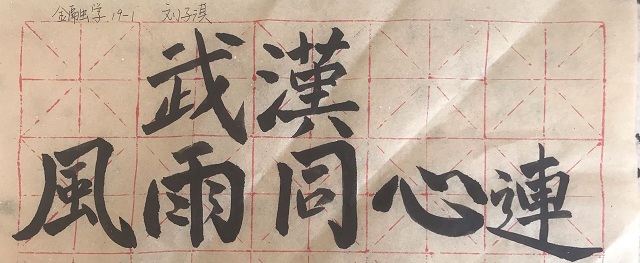 金融学 19-1 刘子淇
武漢
風雨同心連